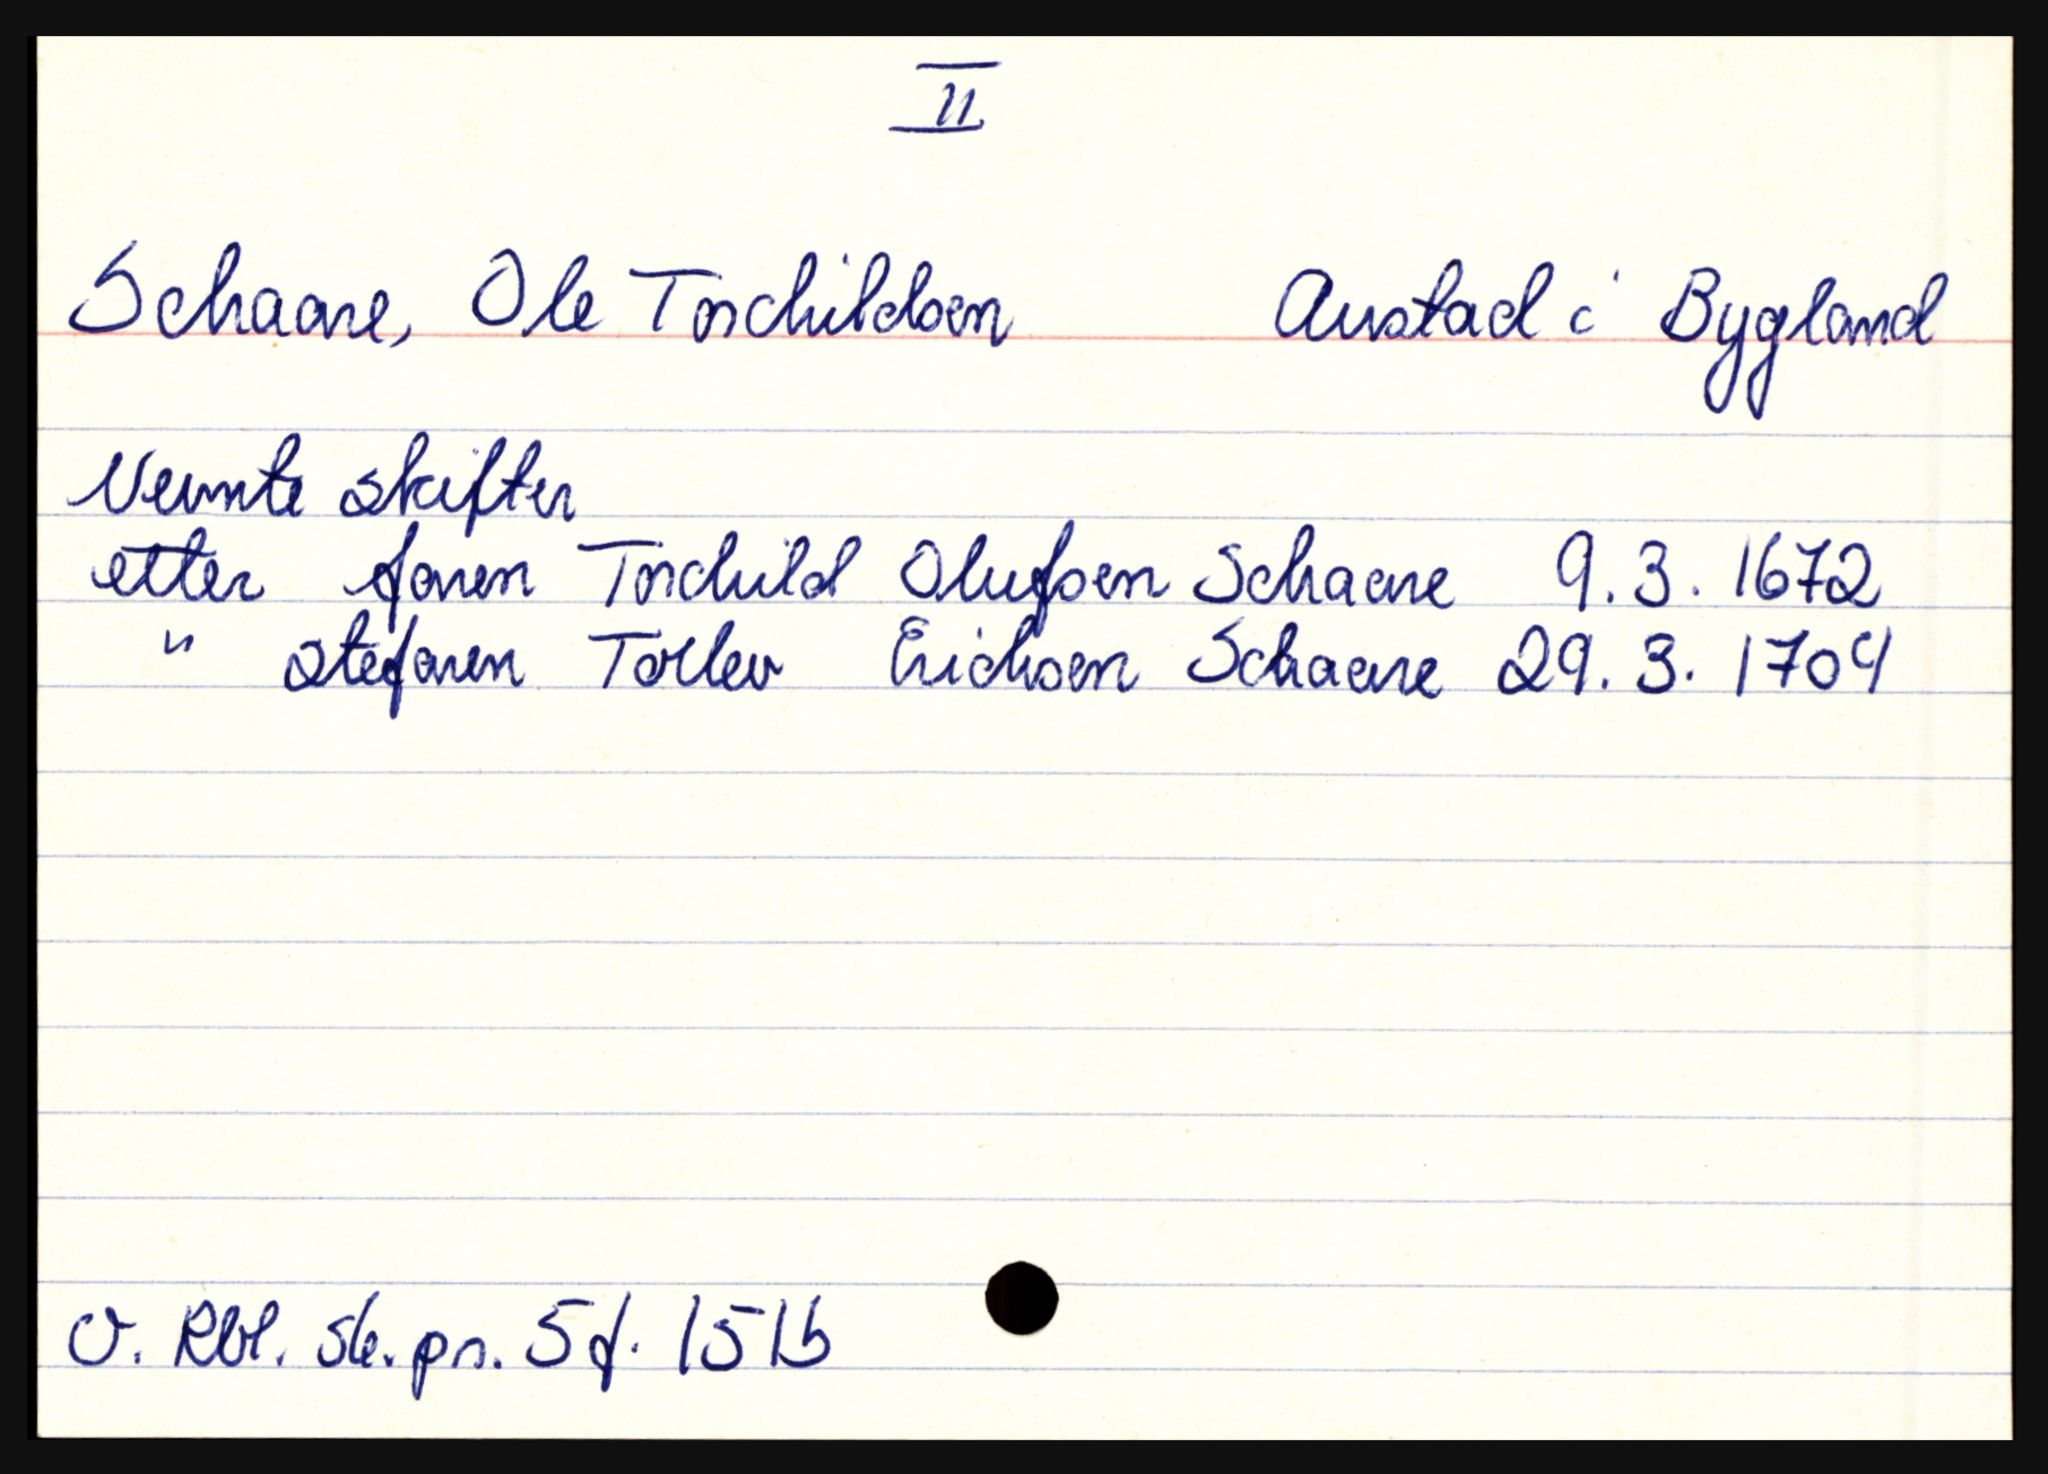 II
Schaare, Ole Torchildsen Austad i Bygland
Nevnte skifter
etter faren Torchild Olufsen Schaare 9.3. 1672
" stefaren Tollev Erichsen Schaare 29.3. 1704
V. Rbl. sk.pr. 5 f. 151b